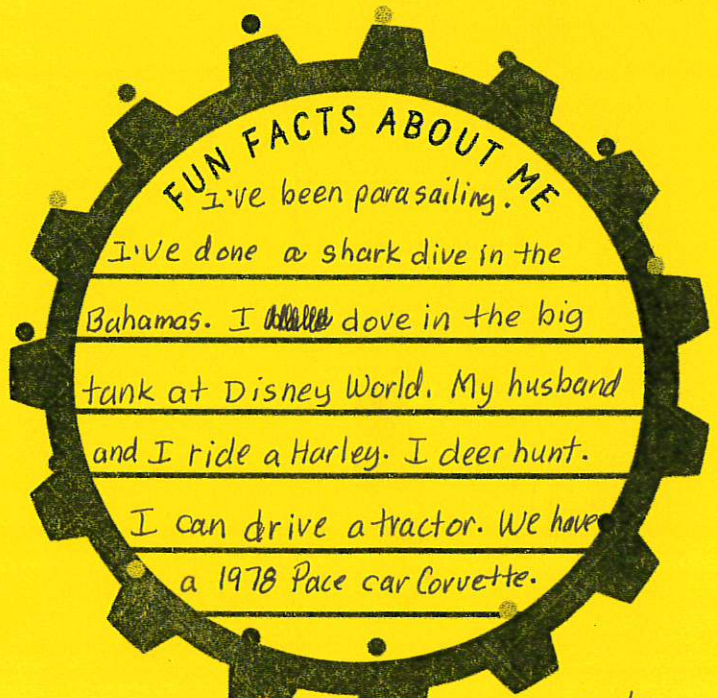 FUN FACTS ABOUT ME
I've been parasailing.
I've done a shark dive in the
Bahamas. I dove in the big
tank at Disney World. My husband
and I ride a Harley. I deer hunt.
I can drive a tractor. We have
a 1978 Pace car Corvette.